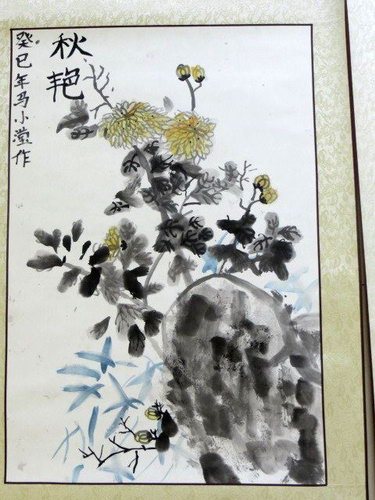 秋艳
癸巳年马小滢作